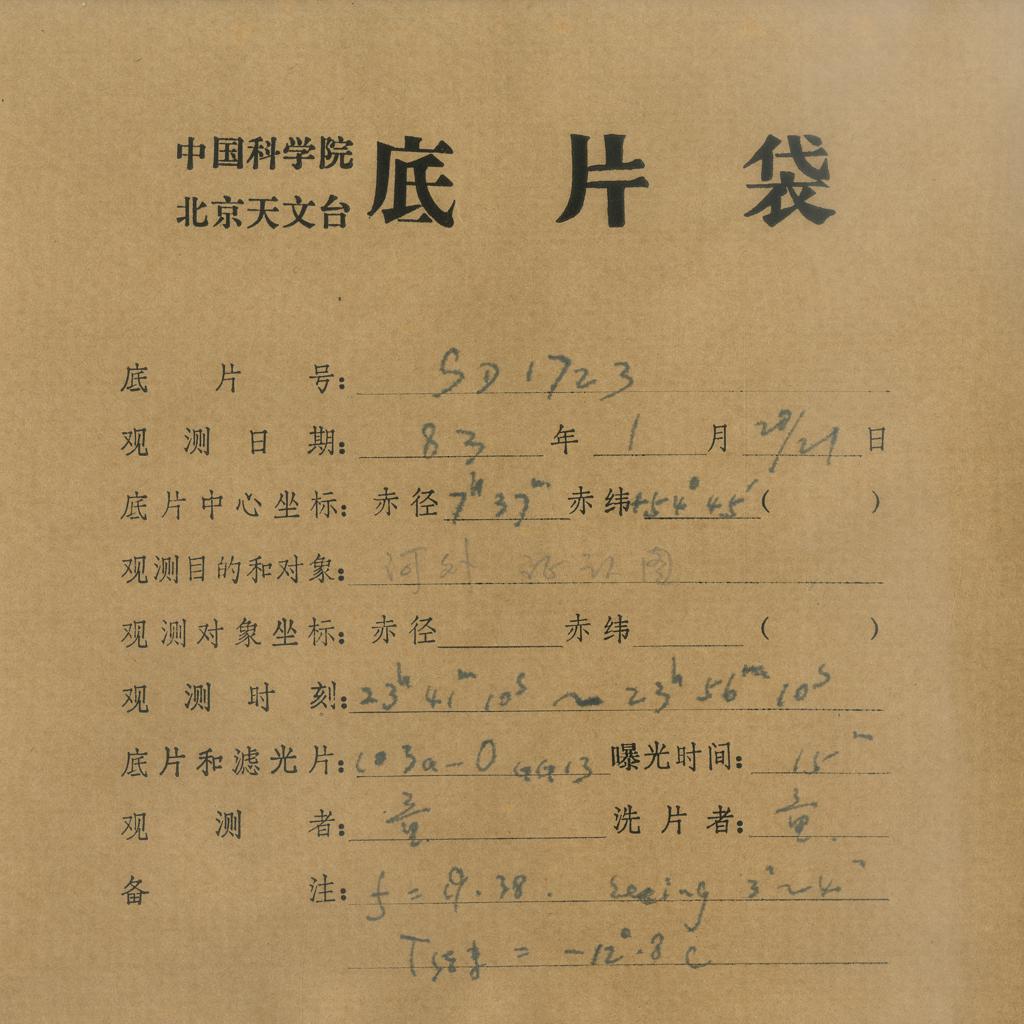 中国科学院
北京天文台
底片袋
底片号: SD1723
观测日期: 83年1月20/21日
底片中心坐标: 赤径7h37m赤纬+54°45′( )
观测目的和对象: 河外 证认图
观测对象坐标: 赤径 赤纬 ( )
观测时刻: 23h41m10s ~ 23h56m10s
底片和滤光片: 103a-O GG13 曝光时间: 15m
观测者: 洗片者:
备注: f = 9.38. seeing 3"~4"
T = -12°.8 C